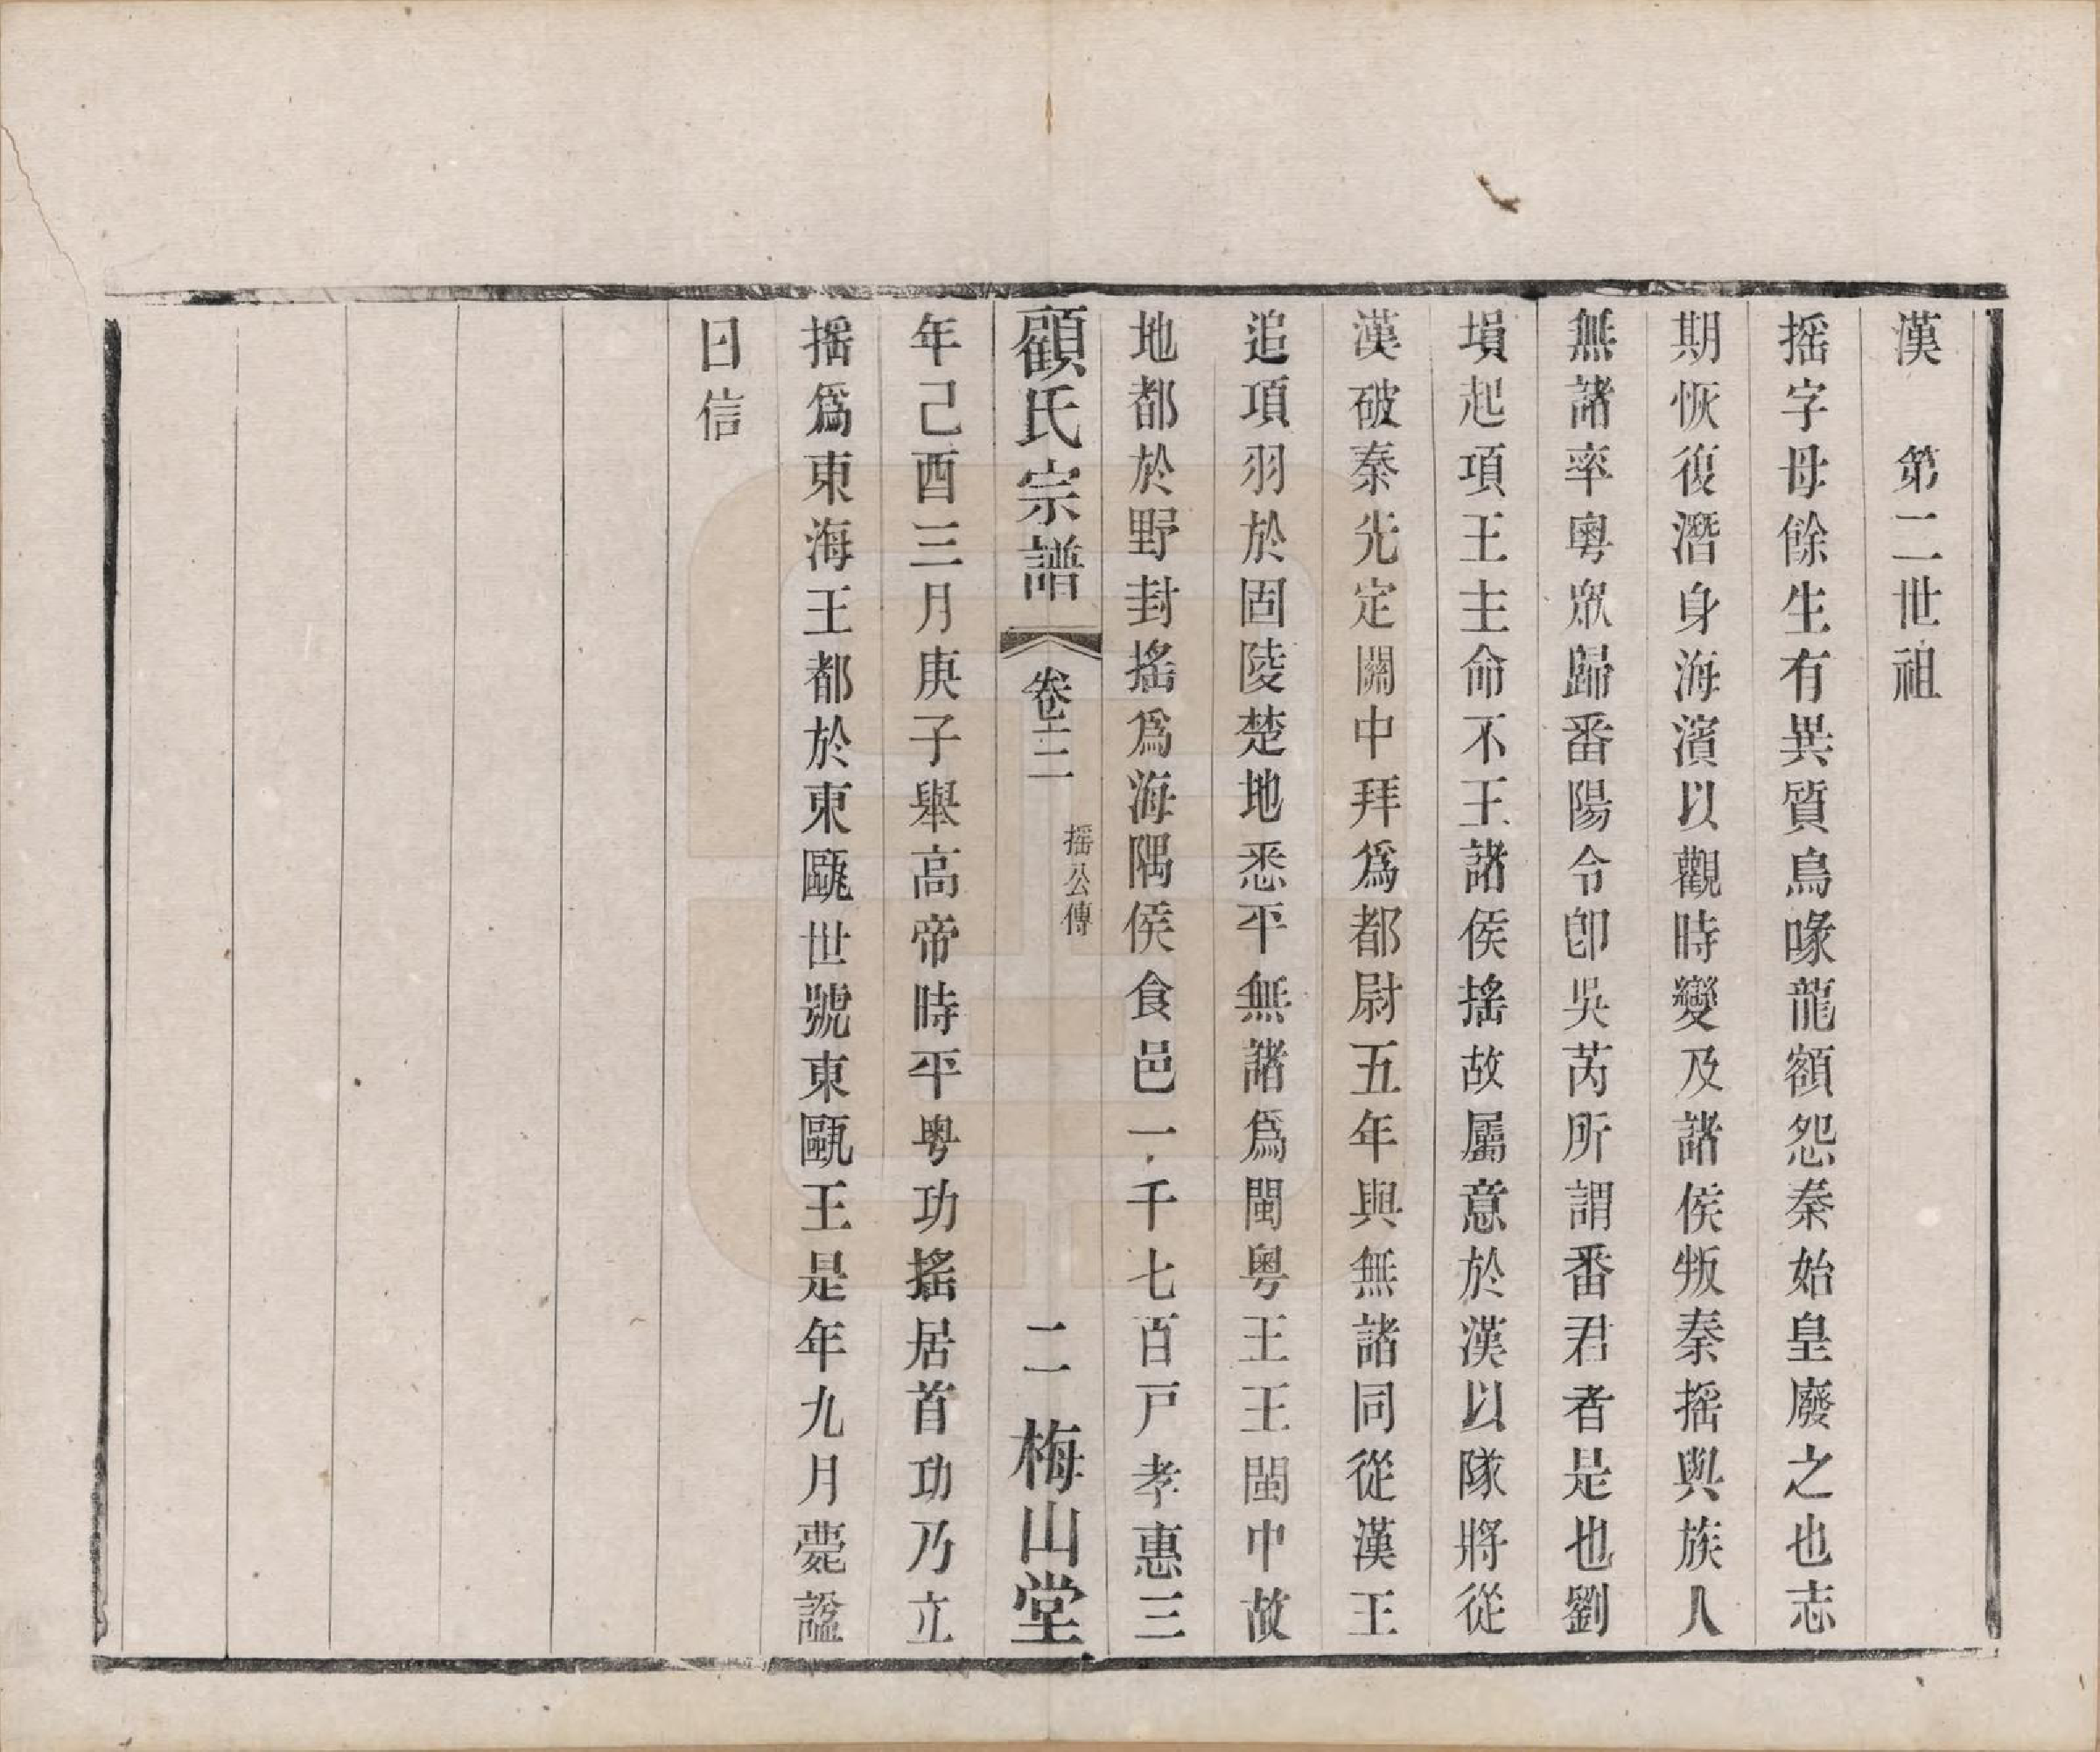 漢　第二世祖
摇字母餘生有異質鳥喙龍額怨秦始皇廢之也志
期恢復潛身海濱以觀時變及諸侯叛秦摇與族人
無諸率粵眾歸番陽令卽吳芮所謂番君者是也劉
塤起項王主命不王諸侯摇故屬意於漢以隊將從
漢破秦先定關中拜爲都尉五年與無諸同從漢王
追項羽於固陵楚地悉平無諸爲閩粵王王閩中故
地都於野封摇爲海隅侯食邑一千七百戸孝惠三
顧氏宗譜　卷二　摇公傳　二　梅山堂
年己酉三月庚子舉高帝時平粤功摇居首功乃立
摇爲東海王都於東甌世號東甌王是年九月薨諡
曰信